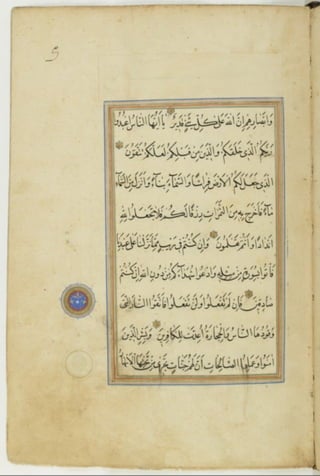 وَاَبْصَارِهِمْ اِنَّ اللهَ عَلٰى كُلِّ شَيْءٍ قَدِيرٌ يَا اَيُّهَا النَّاسُ اعْبُدُوا
رَبَّكُمُ الَّذِي خَلَقَكُمْ وَالَّذِينَ مِنْ قَبْلِكُمْ لَعَلَّكُمْ تَتَّقُونَ
الَّذِي جَعَلَ لَكُمُ الْاَرْضَ فِرَاشًا وَالسَّمَاءَ بِنَاءً وَاَنْزَلَ مِنَ السَّمَاءِ
مَاءً فَاَخْرَجَ بِهِ مِنَ الثَّمَرَاتِ رِزْقًا لَكُمْ فَلَا تَجْعَلُوا لِلّٰهِ
اَنْدَادًا وَاَنْتُمْ تَعْلَمُونَ وَاِنْ كُنْتُمْ فِي رَيْبٍ مِمَّا نَزَّلْنَا عَلٰى عَبْدِنَا
فَاْتُوا بِسُورَةٍ مِنْ مِثْلِهِ وَادْعُوا شُهَدَاءَكُمْ مِنْ دُونِ اللهِ اِنْ كُنْتُمْ
صَادِقِينَ فَاِنْ لَمْ تَفْعَلُوا وَلَنْ تَفْعَلُوا فَاتَّقُوا النَّارَ الَّتِي
وَقُودُهَا النَّاسُ وَالْحِجَارَةُ اُعِدَّتْ لِلْكَافِرِينَ وَبَشِّرِ الَّذِينَ
اٰمَنُوا وَعَمِلُوا الصَّالِحَاتِ اَنَّ لَهُمْ جَنَّاتٍ تَجْرِي مِنْ تَحْتِهَا الْاَنْهَارُ